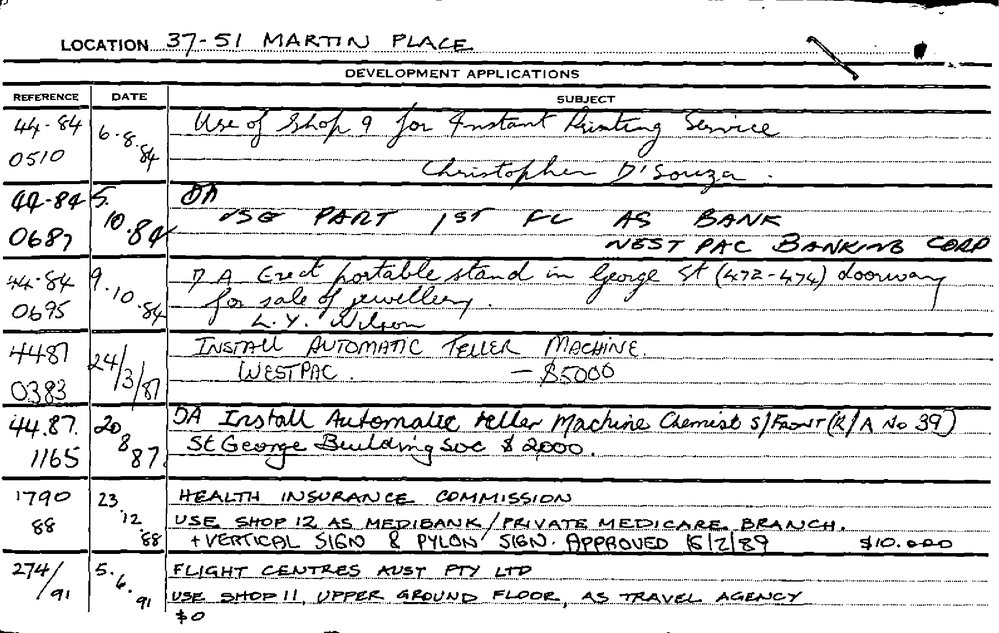 LOCATION 37-51 MARTIN PLACE
DEVELOPMENT APPLICATIONS
REFERENCE DATE SUBJECT
44-84 0510 6.8.84 Use of Shop 9 for Instant Printing Service
Christopher D'Souza.
44-84 0687 5.10.84 DA
USE PART 1ST FL AS BANK
WESTPAC BANKING CORP
44-84 0695 9.10.84 DA Erect portable stand in George St (472-474) doorway
for sale of jewellery.
L. Y. Wilson
4487 0383 24/3/87 INSTALL AUTOMATIC TELLER MACHINE.
WESTPAC. - $5000
44.87. 1165 20 8 87. DA Install Automatic teller Machine Chemist S/FRONT (R/A No 39)
St George Building Soc $2000.
1790 88 23.12.88 HEALTH INSURANCE COMMISSION
USE SHOP 12 AS MEDIBANK/PRIVATE MEDICARE BRANCH.
+ VERTICAL SIGN & PYLON SIGN. APPROVED 16/2/89 $10.000
274/91 5.6.91 FLIGHT CENTRES AUST PTY LTD
USE SHOP 11, UPPER GROUND FLOOR, AS TRAVEL AGENCY
$0